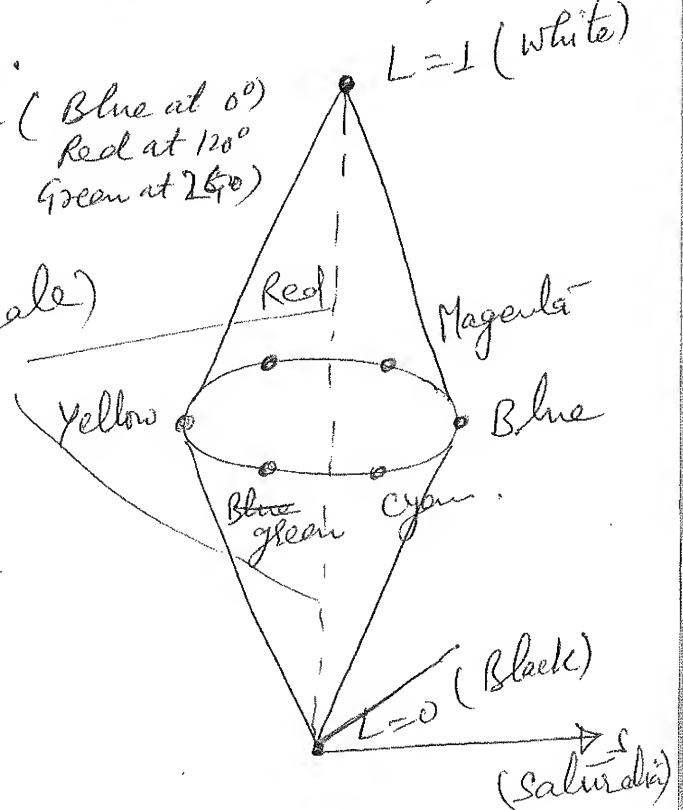 L=1 (White)
( Blue at 0°)
Red at 120°
Green at 240)
ale)
Red
Magenta
Yellow
Blue
Blue
green
Cyan.
L=0 (Black)
S
(Saturation)